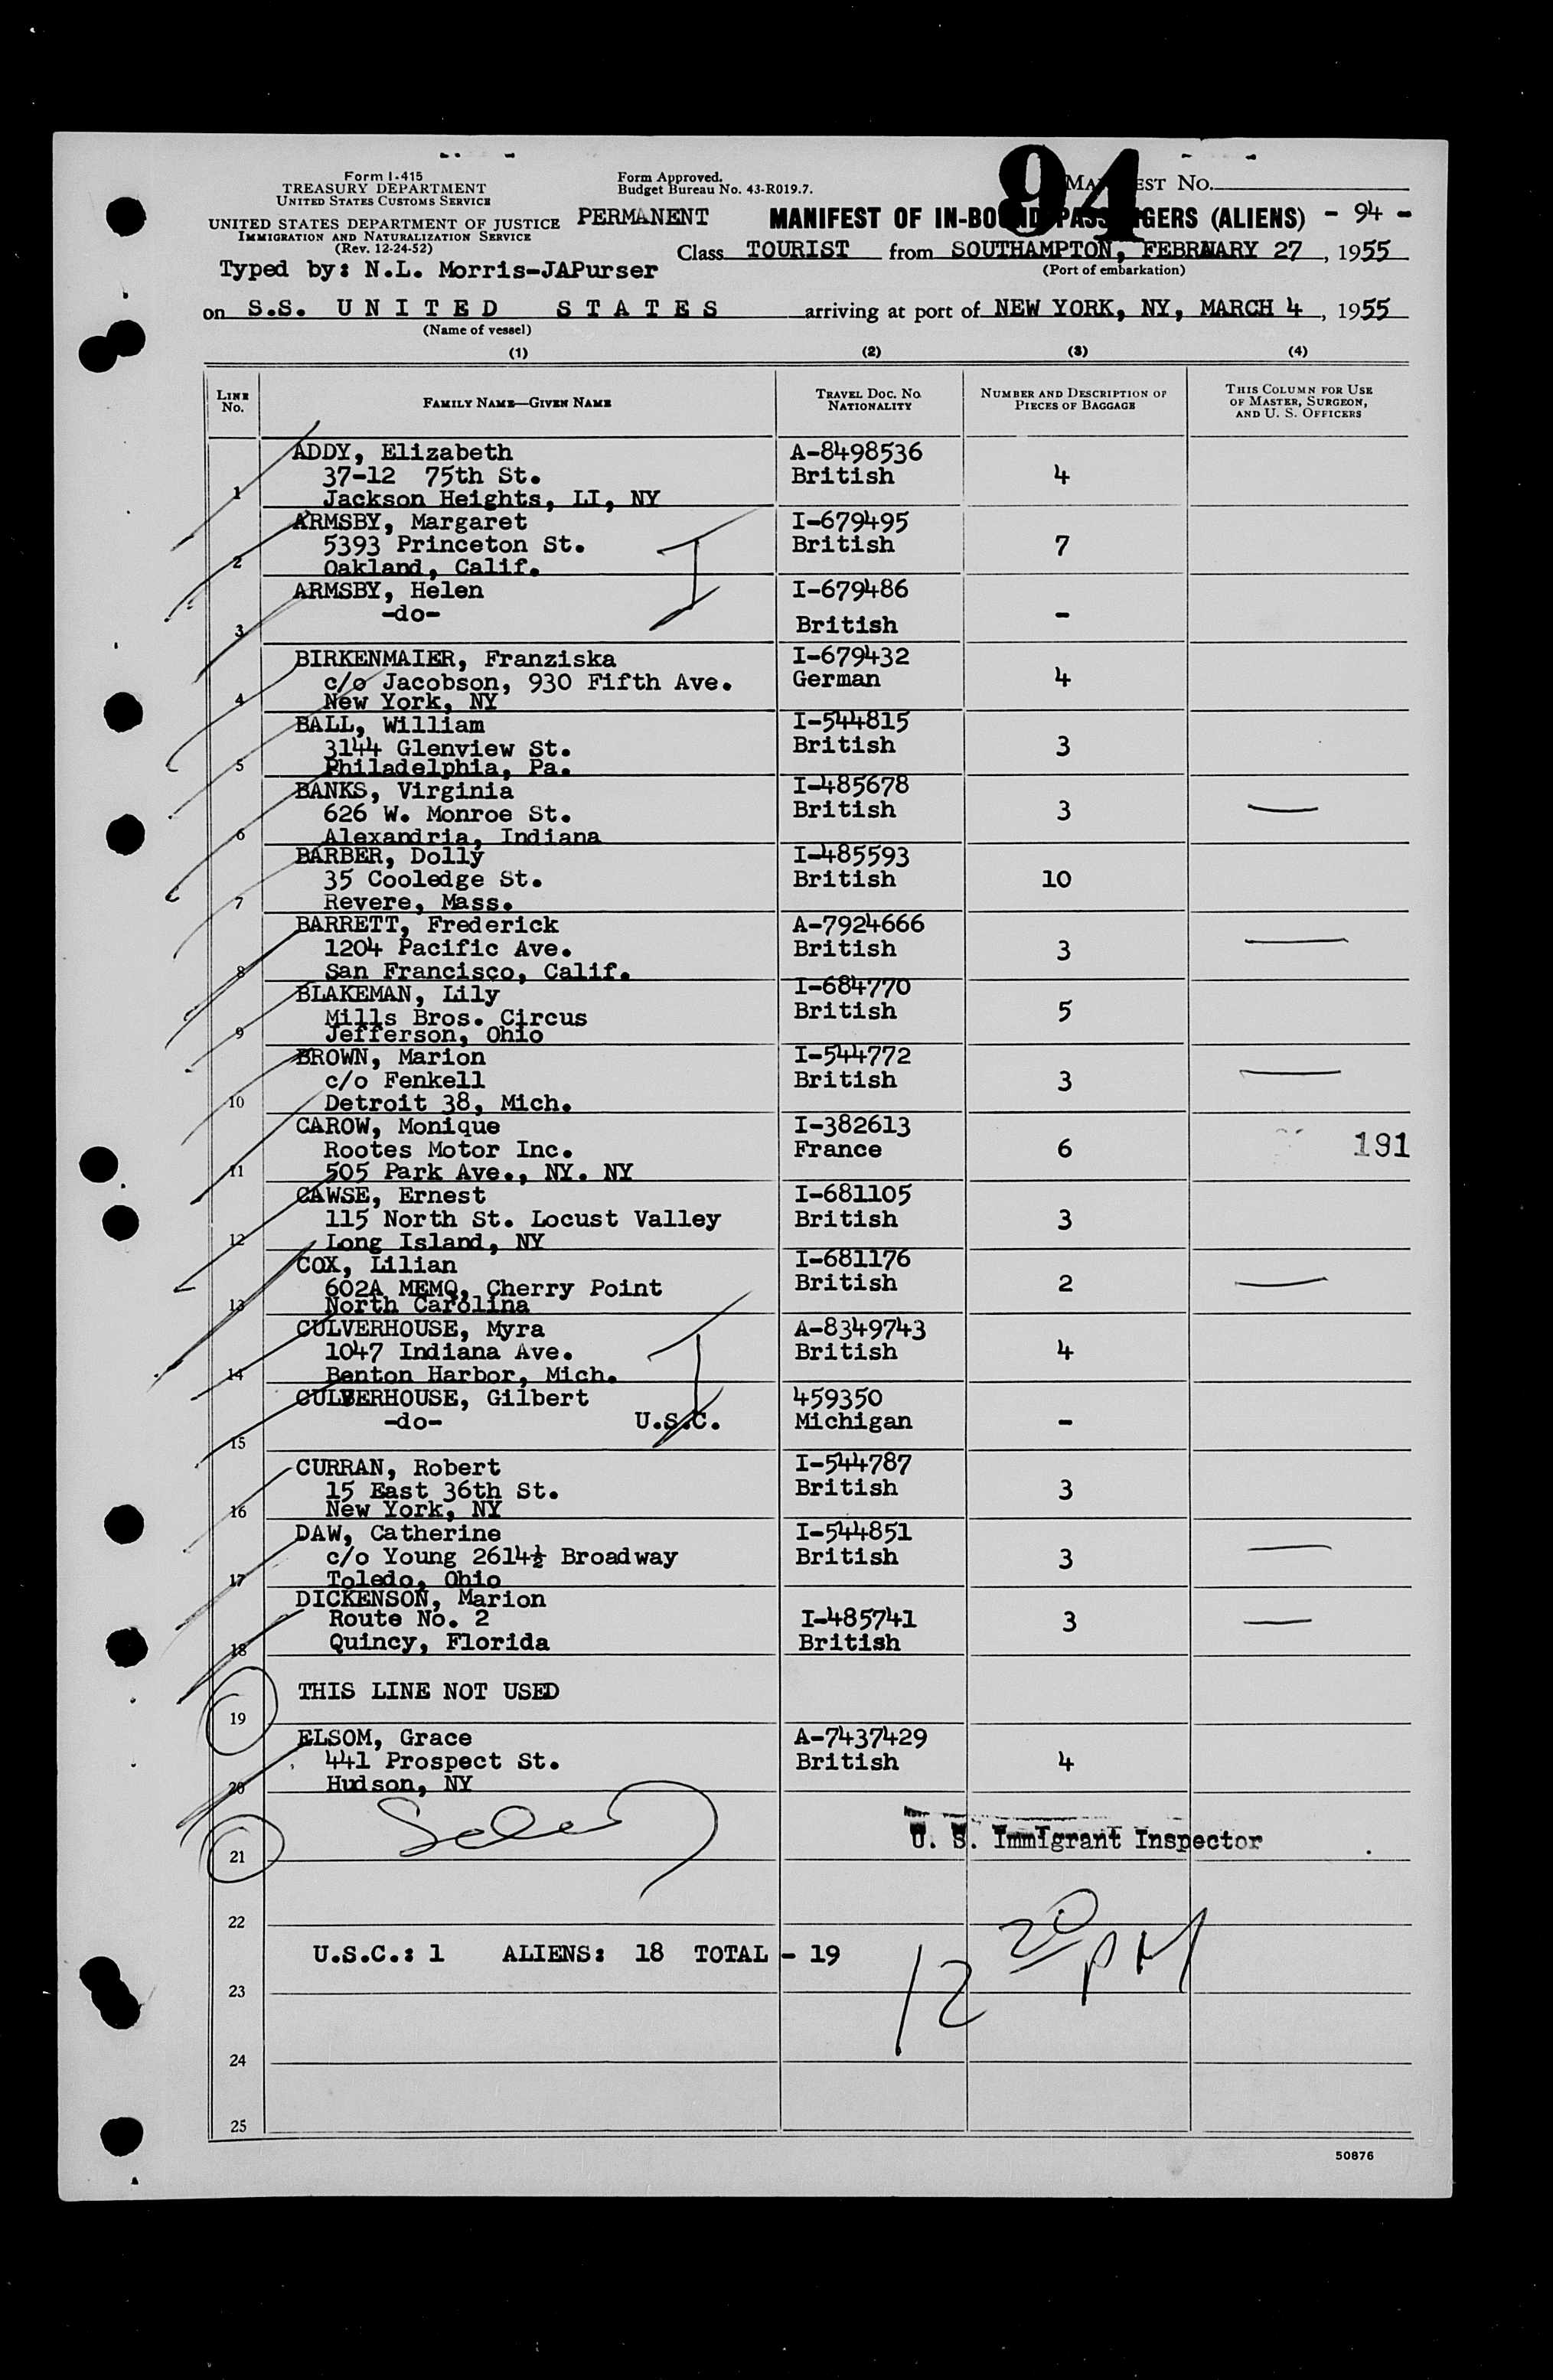 94
Form I-415
TREASURY DEPARTMENT
UNITED STATES CUSTOMS SERVICE
UNITED STATES DEPARTMENT OF JUSTICE
IMMIGRATION AND NATURALIZATION SERVICE
(Rev. 12-24-52)
Form Approved.
Budget Bureau No. 43-R019.7.
PERMANENT
MANIFEST NO.
MANIFEST OF IN-BOUND PASSENGERS (ALIENS) - 94 -
Class TOURIST from SOUTHAMPTON, FEBRUARY 27, 1955
(Port of embarkation)
Typed by: N.L. Morris-JAPurser
on S.S. UNITED STATES arriving at port of NEW YORK, NY, MARCH 4, 1955
(Name of vessel)
(1) (2) (3) (4)
LINE NO. FAMILY NAME—GIVEN NAME TRAVEL DOC. NO. NATIONALITY NUMBER AND DESCRIPTION OF PIECES OF BAGGAGE THIS COLUMN FOR USE OF MASTER, SURGEON, AND U. S. OFFICERS
ADDY, Elizabeth A-8498536
37-12 75th St. British 4
1 Jackson Heights, LI, NY
ARMSBY, Margaret I-679495
5393 Princeton St. British 7
2 Oakland, Calif.
ARMSBY, Helen I-679486
-do-
3 British -
BIRKENMAIER, Franziska I-679432
c/o Jacobson, 930 Fifth Ave. German 4
4 New York, NY
BALL, William I-544815
3144 Glenview St. British 3
5 Philadelphia, Pa.
BANKS, Virginia I-485678
626 W. Monroe St. British 3
6 Alexandria, Indiana
BARBER, Dolly I-485593
35 Cooledge St. British 10
7 Revere, Mass.
BARRETT, Frederick A-7924666
1204 Pacific Ave. British 3
8 San Francisco, Calif.
BLAKEMAN, Lily I-684770
Mills Bros. Circus British 5
9 Jefferson, Ohio
BROWN, Marion I-544772
c/o Fenkell British 3
10 Detroit 38, Mich.
CAROW, Monique I-382613
Rootes Motor Inc. France 6 191
11 505 Park Ave., NY. NY
CAWSE, Ernest I-681105
115 North St. Locust Valley British 3
12 Long Island, NY
COX, Lilian I-681176
602A MEMQ, Cherry Point British 2
13 North Carolina
CULVERHOUSE, Myra A-8349743
1047 Indiana Ave. British 4
14 Benton Harbor, Mich.
CULVERHOUSE, Gilbert 459350
-do- U.S.C. Michigan -
15
CURRAN, Robert I-544787
15 East 36th St. British 3
16 New York, NY
DAW, Catherine I-544851
c/o Young 2614½ Broadway British 3
17 Toledo, Ohio
DICKENSON, Marion
Route No. 2 I-485741 3
18 Quincy, Florida British
THIS LINE NOT USED
19
ELSOM, Grace A-7437429
441 Prospect St. British 4
20 Hudson, NY
U. S. Immigrant Inspector
21
22
U.S.C.: 1 ALIENS: 18 TOTAL - 19
12 20 PM
23
24
25
50876